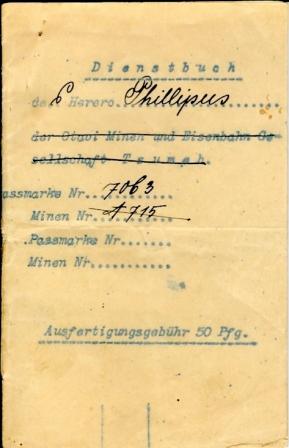 Dienstbuch
des Herero Phillipus
der Otavi Minen und Eisenbahn Ge-
sellschaft Tsumeb.
Passmarke Nr. 7063
Minen Nr. 1715
Passmarke Nr.......
Minen Nr...........
Ausfertigungsgebühr 50 Pfg.